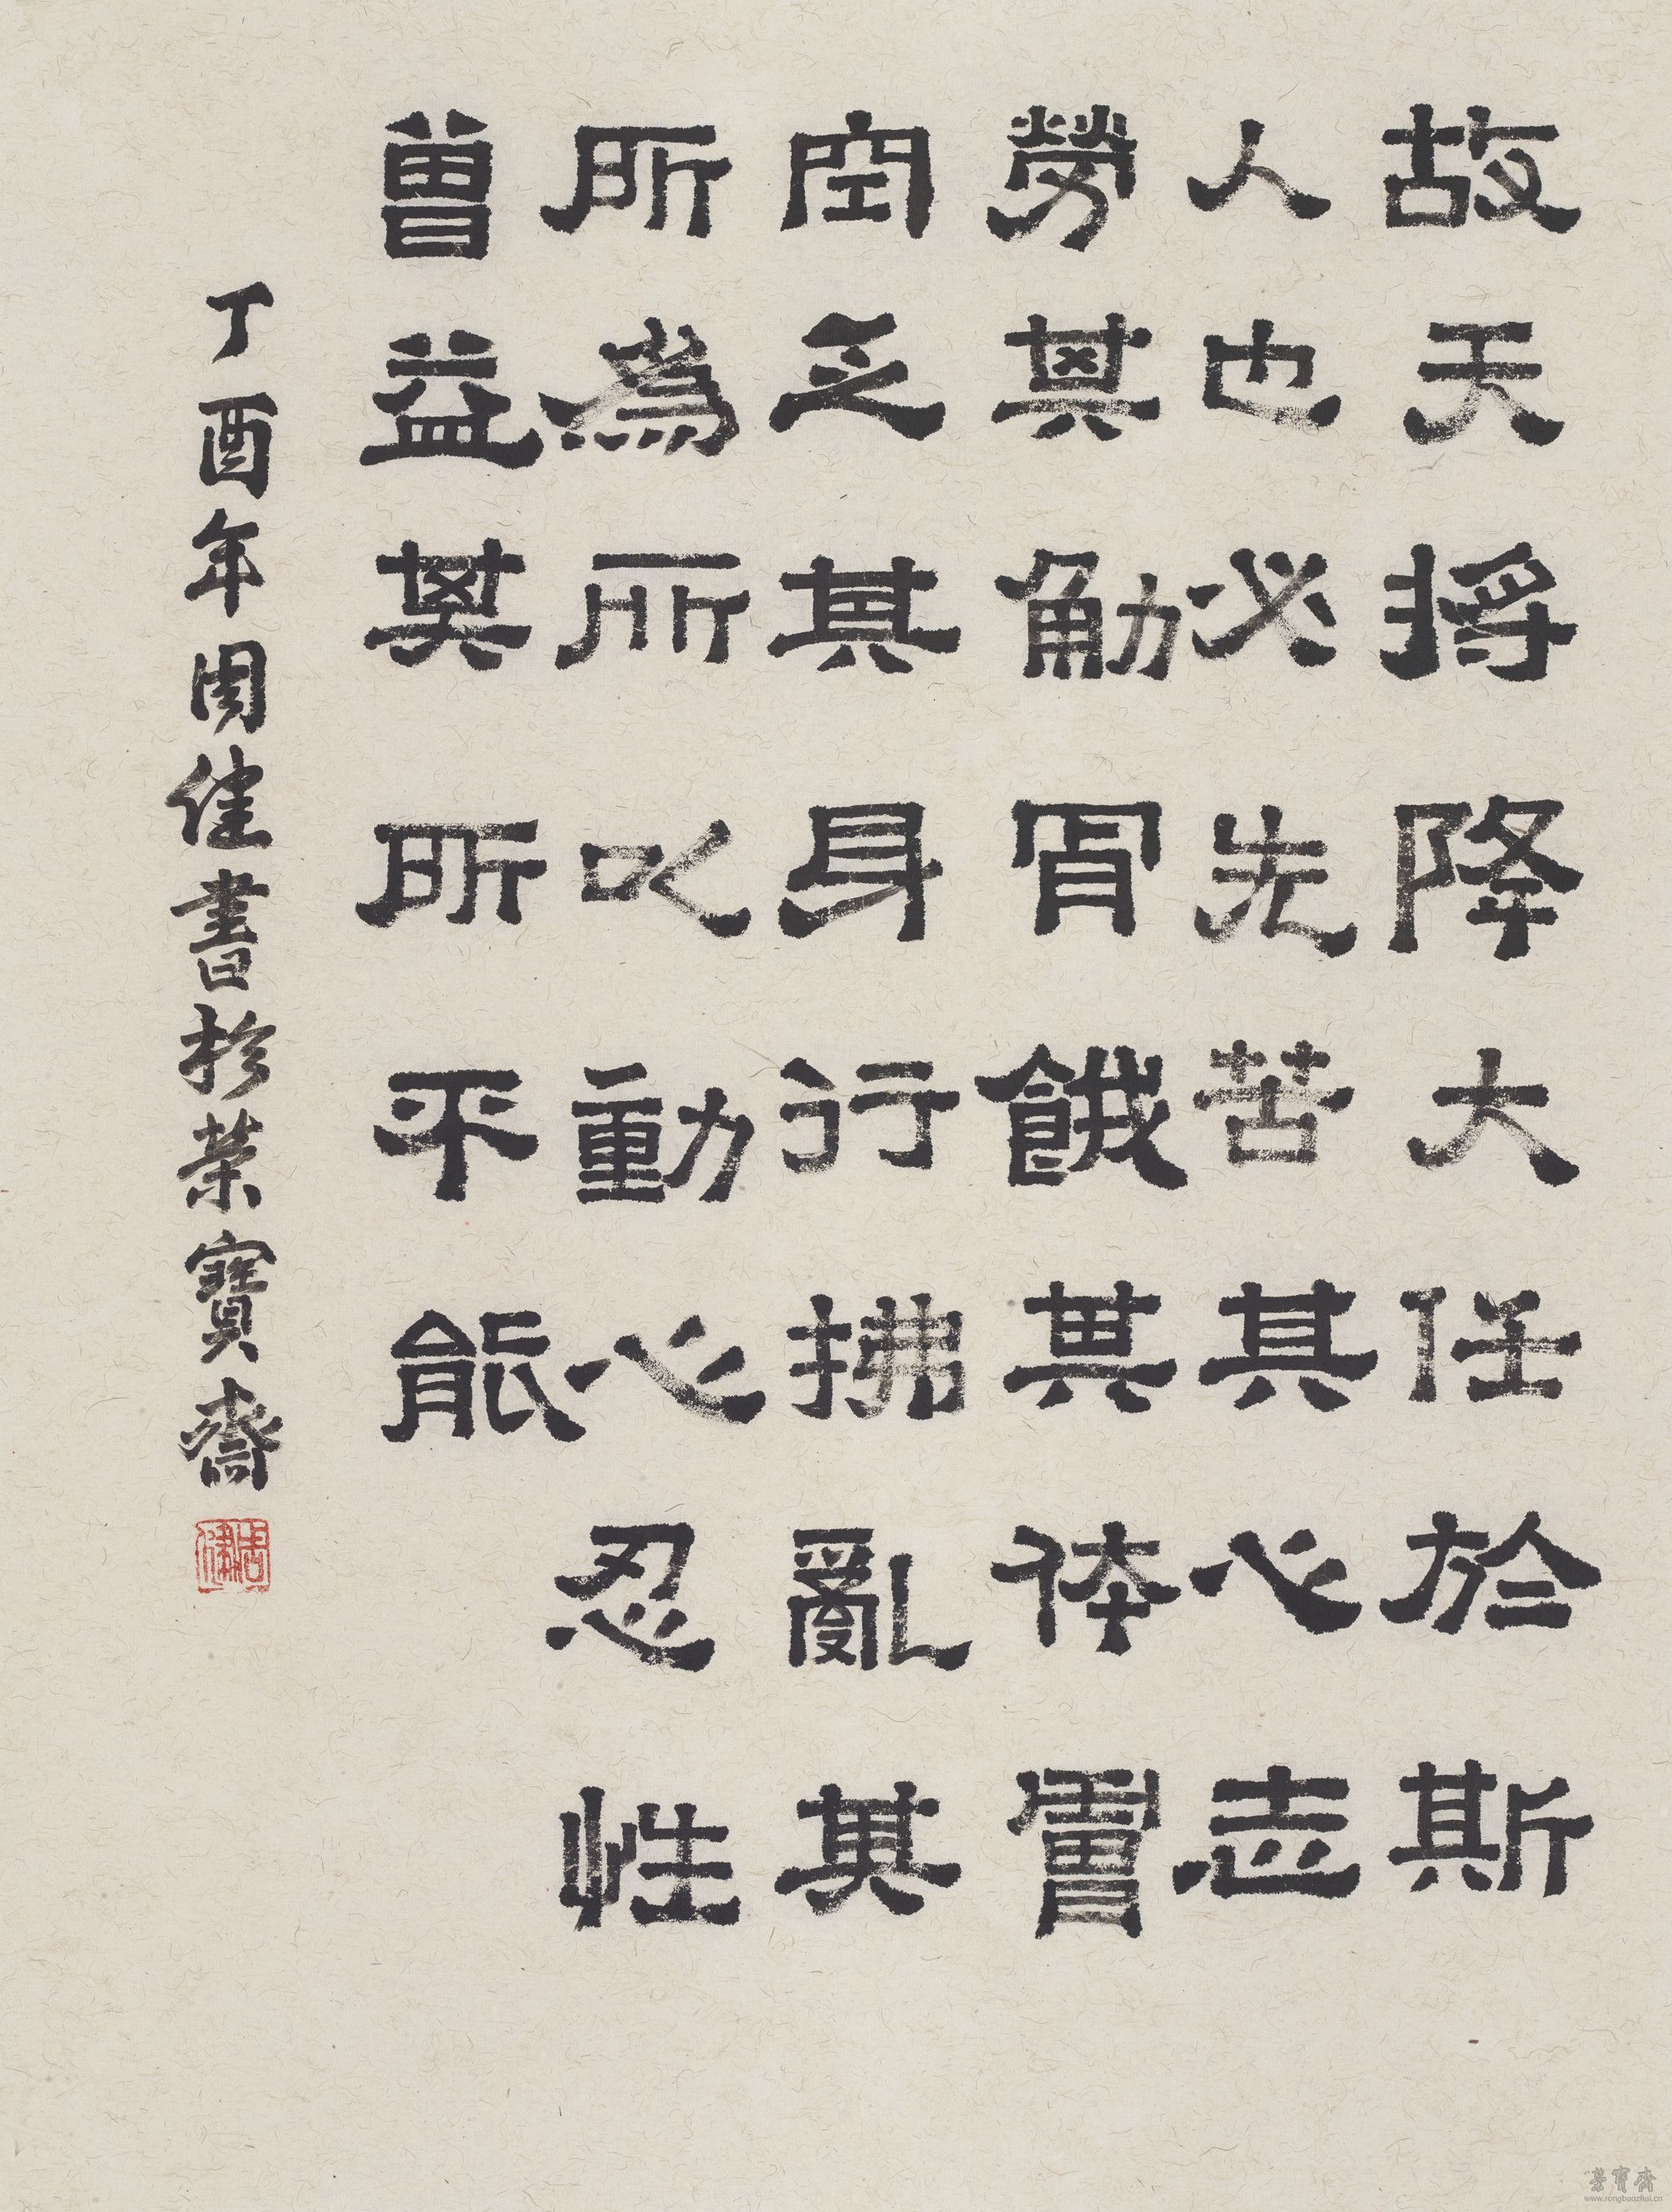 故天将降大任於斯
人也必先苦其心志
勞其觔骨餓其体膚
空乏其身行拂亂其
所為所以動心忍性
曾益其所不能
丁酉年周健書於荣寶齋
周健
榮寶齋
www.rongbaozhai.cn